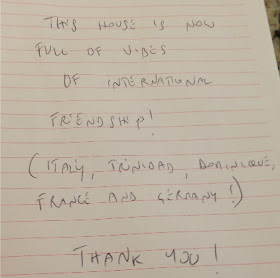 THIS HOUSE IS NOW
FULL OF VIBES
OF INTERNATIONAL
FRIENDSHIP!
(ITALY, TRINIDAD, DOMINIQUE,
FRANCE AND GERMANY!)
THANK YOU!